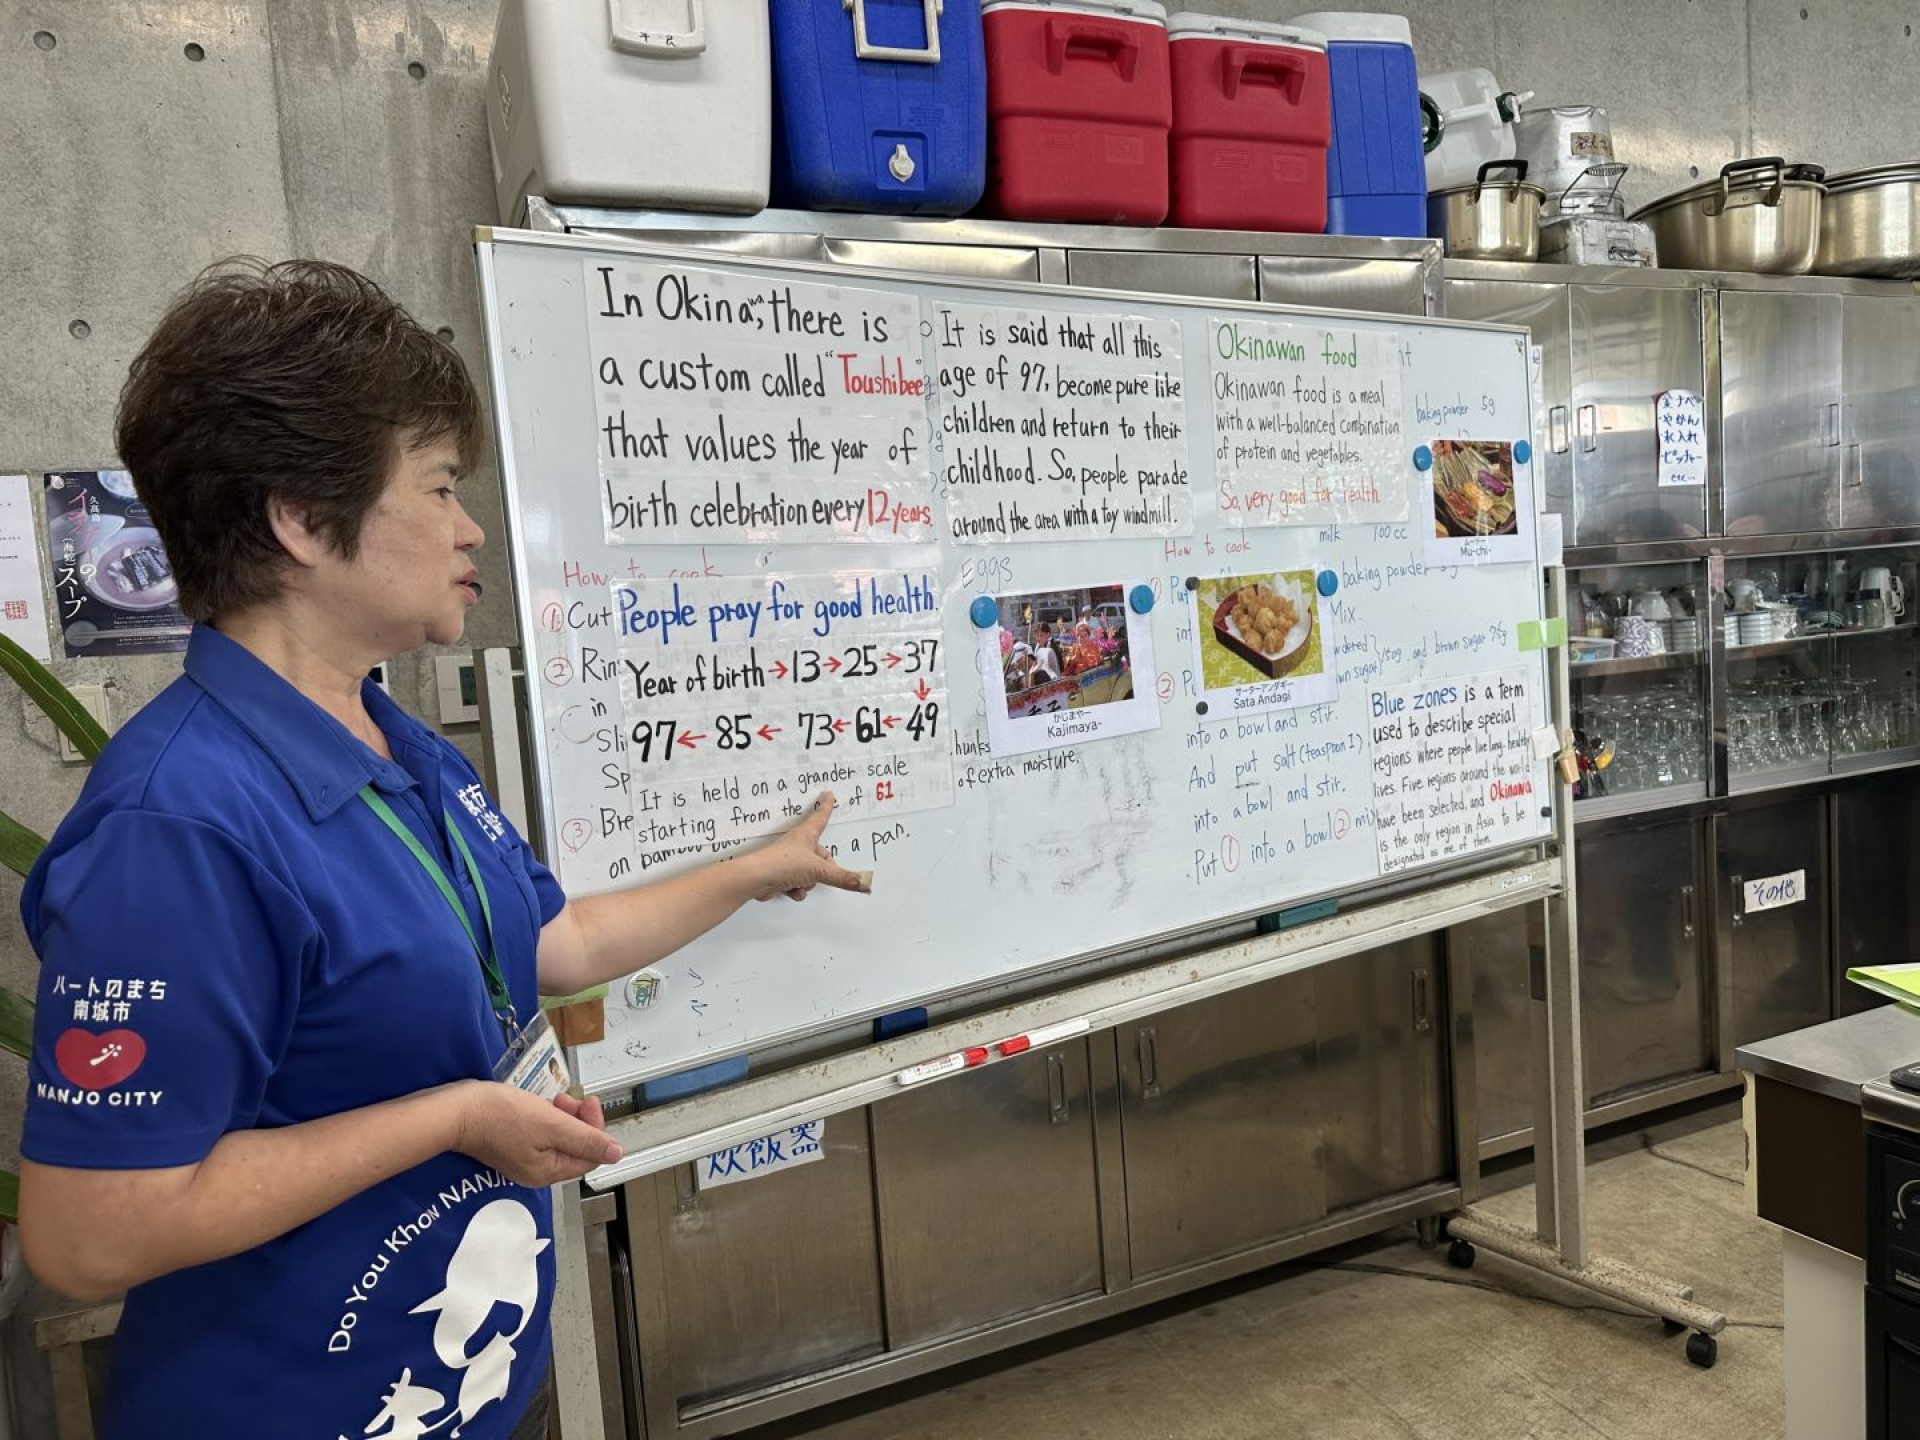 In Okinawa, there is
a custom called "Toushibee"
that values the year of
birth celebration every 12 years.
It is said that all this
age of 97, become pure like
children and return to their
childhood. So, people parade
around the area with a toy windmill.
Okinawan food
Okinawan food is a meal
with a well-balanced combination
of protein and vegetables.
So, very good for health
baking powder 5g
ムーチー
Mu-chi-
How to cook
① Cut
② Rin
in
Sli
Sp
③ Bre
on bamboo
in a pan.
People pray for good health.
Year of birth → 13 → 25 → 37
97 ← 85 ← 73 ← 61 ← 49
It is held on a grander scale
starting from the of 61
Eggs
hunks
of extra moisture.
かじまやー
Kajimaya-
How to cook
milk 100cc
baking powder 5g
Mix.
① Put
int
サーターアンダギー
Sata Andagi
② P
brown sugar 75g
into a bowl and stir.
And put salt (teaspoon 1)
into a bowl and stir.
Put ① into a bowl ② mix
Blue zones is a term
used to describe special
regions where people live long, healthy
lives. Five regions around the world
have been selected, and Okinawa
is the only region in Asia to be
designated as one of them.
金ナベ
やかん
水入れ
ピッチャー
etc…
その他
炊飯器
久高島
イラブーの
(海蛇)スープ
ハートのまち
南城市
NANJO CITY
Do You Know NANJ